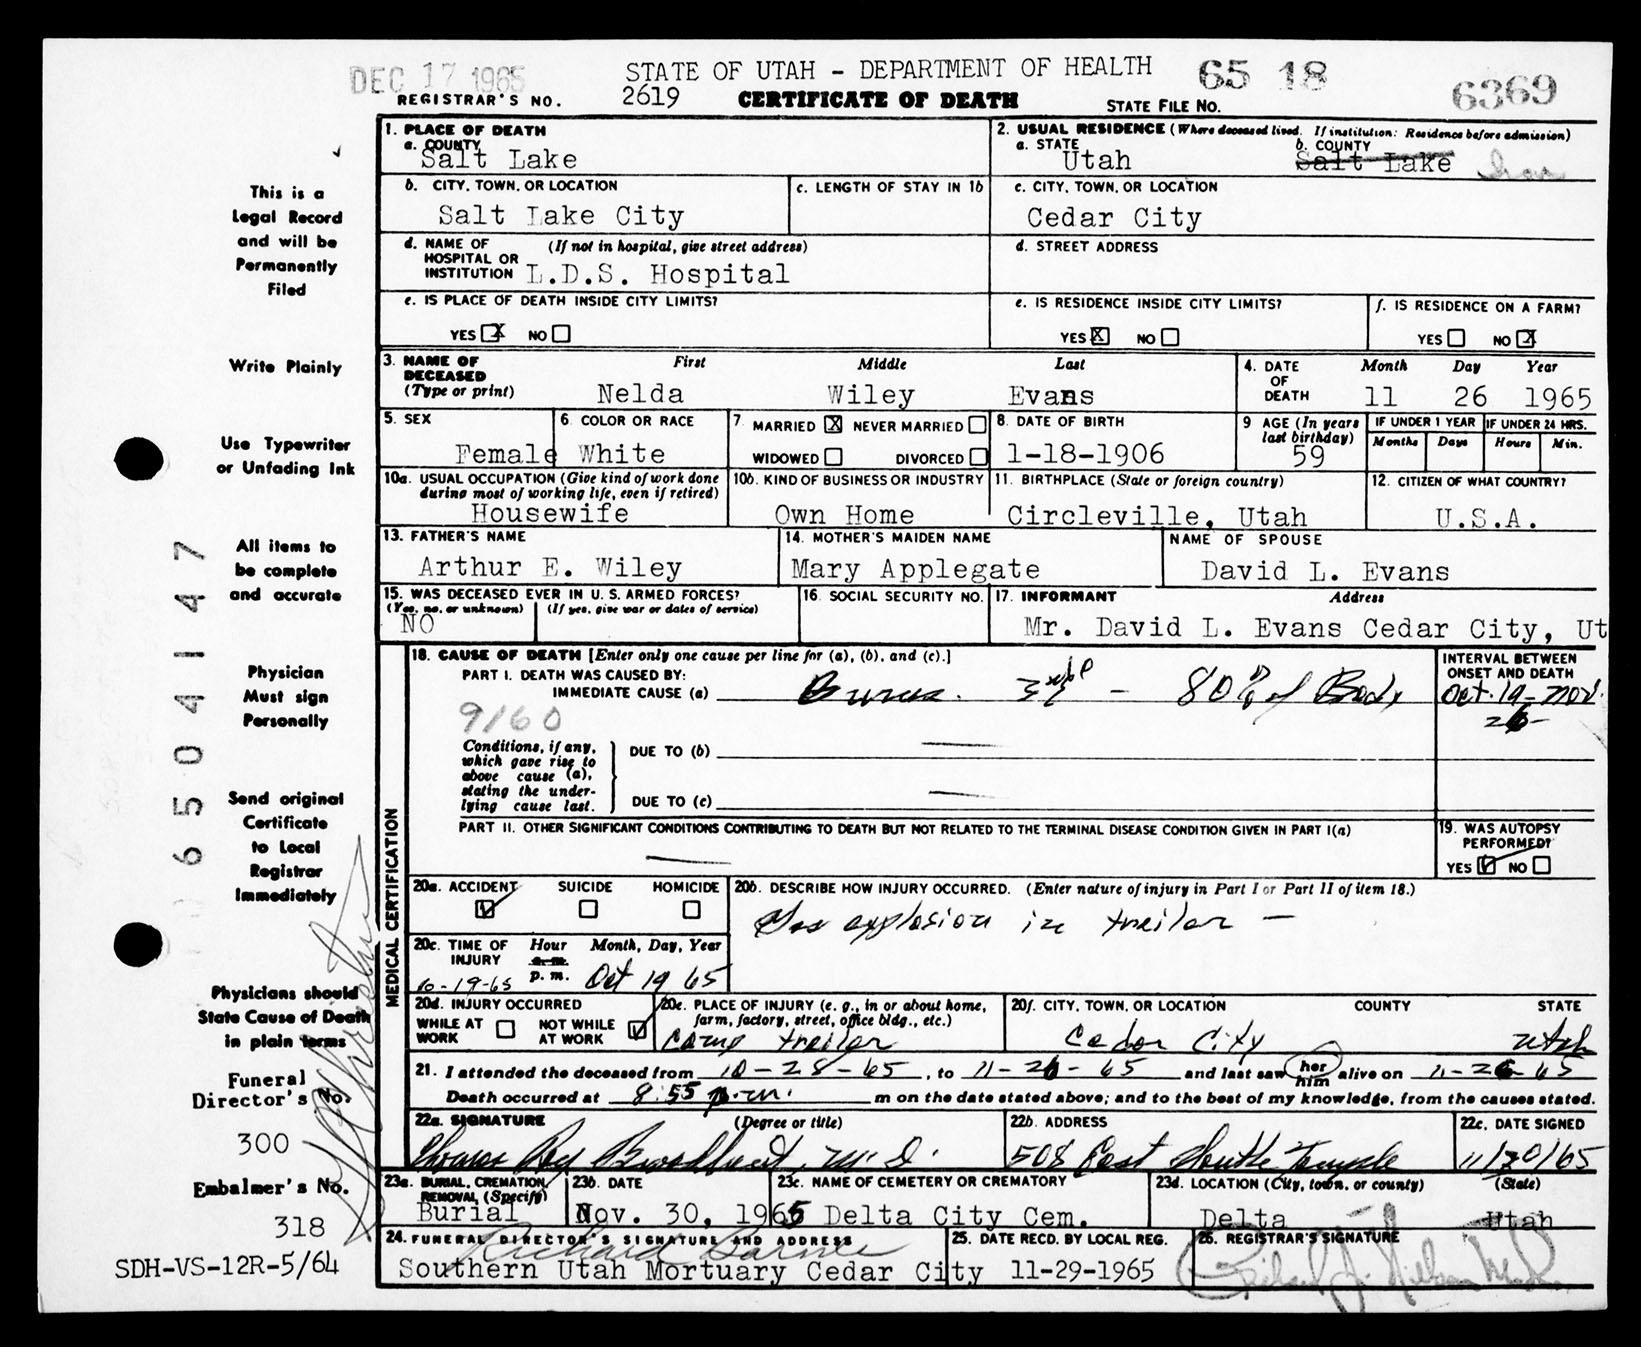 DEC 17 1965
STATE OF UTAH - DEPARTMENT OF HEALTH
65 18
6369
REGISTRAR'S NO. 2619
CERTIFICATE OF DEATH
STATE FILE NO.
This is a
Legal Record
and will be
Permanently
Filed
Write Plainly
Use Typewriter
or Unfading Ink
All items to
be complete
and accurate
Physician
Must sign
Personally
Send original
Certificate
to Local
Registrar
Immediately
Physicians should
State Cause of Death
in plain terms
Funeral
Director's No.
300
Embalmer's No.
318
SDH-VS-12R-5/64
65 04147
1. PLACE OF DEATH
a. COUNTY
Salt Lake
2. USUAL RESIDENCE (Where deceased lived. If institution: Residence before admission)
a. STATE
Utah
b. COUNTY
Salt Lake Iron
b. CITY, TOWN, OR LOCATION
Salt Lake City
c. LENGTH OF STAY IN 1b
c. CITY, TOWN, OR LOCATION
Cedar City
d. NAME OF (If not in hospital, give street address)
HOSPITAL OR
INSTITUTION L.D.S. Hospital
d. STREET ADDRESS
e. IS PLACE OF DEATH INSIDE CITY LIMITS?
YES X NO
e. IS RESIDENCE INSIDE CITY LIMITS?
YES X NO
f. IS RESIDENCE ON A FARM?
YES NO X
3. NAME OF
DECEASED
(Type or print)
First Middle Last
Nelda Wiley Evans
4. DATE
OF
DEATH
Month Day Year
11 26 1965
5. SEX
Female
6. COLOR OR RACE
White
7. MARRIED X NEVER MARRIED
WIDOWED DIVORCED
8. DATE OF BIRTH
1-18-1906
9 AGE (In years
last birthday)
59
IF UNDER 1 YEAR IF UNDER 24 HRS.
Months Days Hours Min.
10a. USUAL OCCUPATION (Give kind of work done
during most of working life, even if retired)
Housewife
10b. KIND OF BUSINESS OR INDUSTRY
Own Home
11. BIRTHPLACE (State or foreign country)
Circleville, Utah
12. CITIZEN OF WHAT COUNTRY?
U.S.A.
13. FATHER'S NAME
Arthur E. Wiley
14. MOTHER'S MAIDEN NAME
Mary Applegate
NAME OF SPOUSE
David L. Evans
15. WAS DECEASED EVER IN U. S. ARMED FORCES?
(Yes, no, or unknown) (If yes, give war or dates of service)
NO
16. SOCIAL SECURITY NO.
17. INFORMANT Address
Mr. David L. Evans Cedar City, Ut
MEDICAL CERTIFICATION
18. CAUSE OF DEATH [Enter only one cause per line for (a), (b), and (c).]
PART I. DEATH WAS CAUSED BY:
IMMEDIATE CAUSE (a) Burns. 80% of Body
9160
Conditions, if any,
which gave rise to
above cause (a),
stating the under-
lying cause last.
DUE TO (b)
DUE TO (c)
INTERVAL BETWEEN
ONSET AND DEATH
Oct. 19 - Nov.
26-
PART II. OTHER SIGNIFICANT CONDITIONS CONTRIBUTING TO DEATH BUT NOT RELATED TO THE TERMINAL DISEASE CONDITION GIVEN IN PART I(a)
19. WAS AUTOPSY
PERFORMED?
YES NO
20a. ACCIDENT SUICIDE HOMICIDE
20b. DESCRIBE HOW INJURY OCCURRED. (Enter nature of injury in Part I or Part II of item 18.)
Gas explosion in trailer -
20c. TIME OF
INJURY
Hour Month, Day, Year
a.m.
p.m.
10-19-65 Oct 19 65
20d. INJURY OCCURRED
WHILE AT
WORK
NOT WHILE
AT WORK
20e. PLACE OF INJURY (e. g., in or about home,
farm, factory, street, office bldg., etc.)
Camp trailer
20f. CITY, TOWN, OR LOCATION COUNTY STATE
Cedar City Utah
21. I attended the deceased from 10-28-65, to 11-26-65 and last saw her him alive on 11-26-65
Death occurred at 8:55 p.m. m on the date stated above; and to the best of my knowledge, from the causes stated.
22a. SIGNATURE (Degree or title)
Thomas Ray Broadbent, M.D.
22b. ADDRESS
508 East South Temple
22c. DATE SIGNED
11/30/65
23a. BURIAL, CREMATION,
REMOVAL, (Specify)
Burial
23b. DATE
Nov. 30, 1965
23c. NAME OF CEMETERY OR CREMATORY
Delta City Cem.
23d. LOCATION (City, town, or county) (State)
Delta Utah
24. FUNERAL DIRECTOR'S SIGNATURE AND ADDRESS
Richard
Southern Utah Mortuary Cedar City
25. DATE RECD. BY LOCAL REG.
11-29-1965
26. REGISTRAR'S SIGNATURE